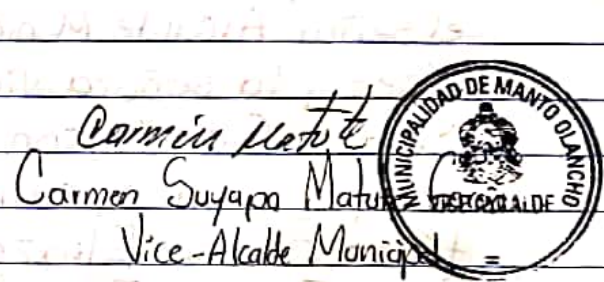 Carmen Matute
Carmen Suyapa Matute
Vice-Alcalde Municipal
MUNICIPALIDAD DE MANTO OLANCHO
VICE ALCALDE